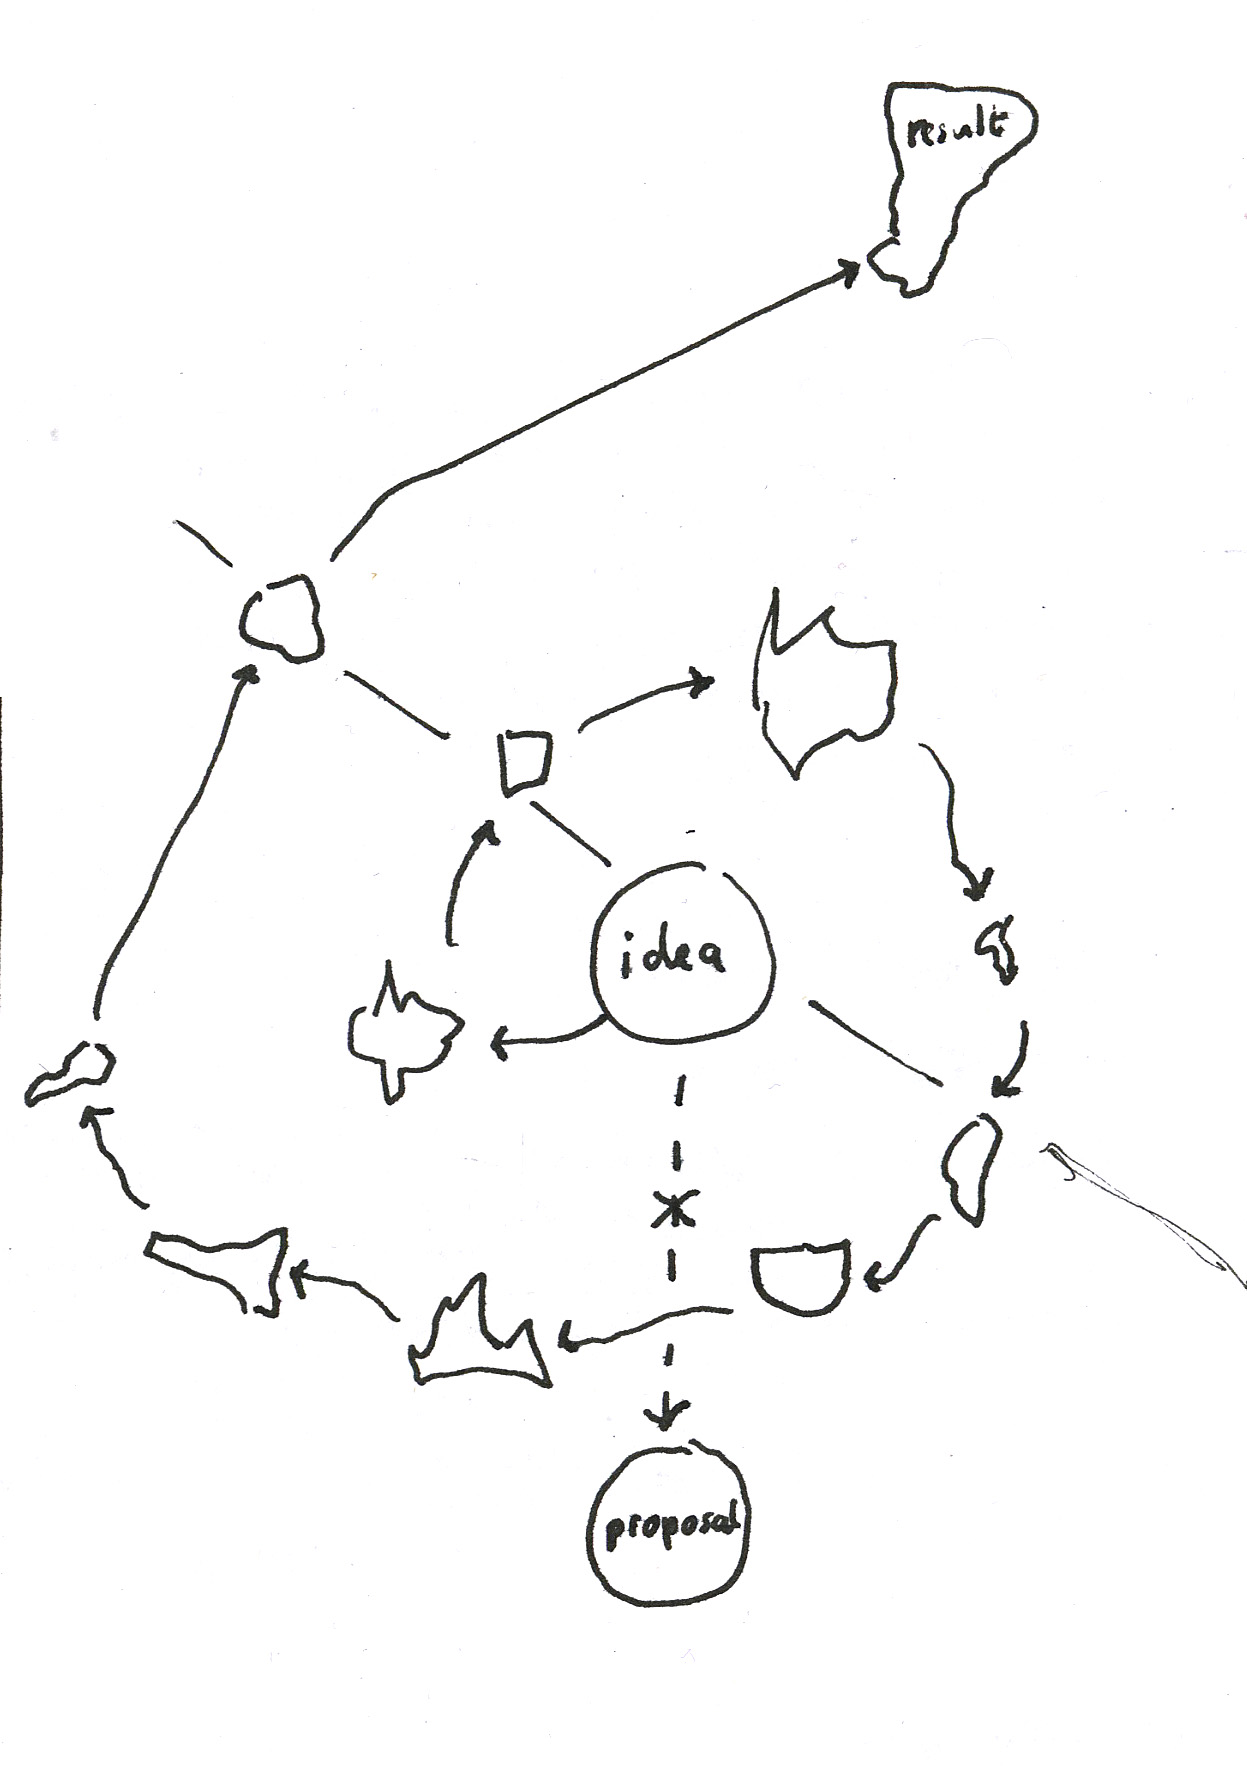 result
idea
proposal